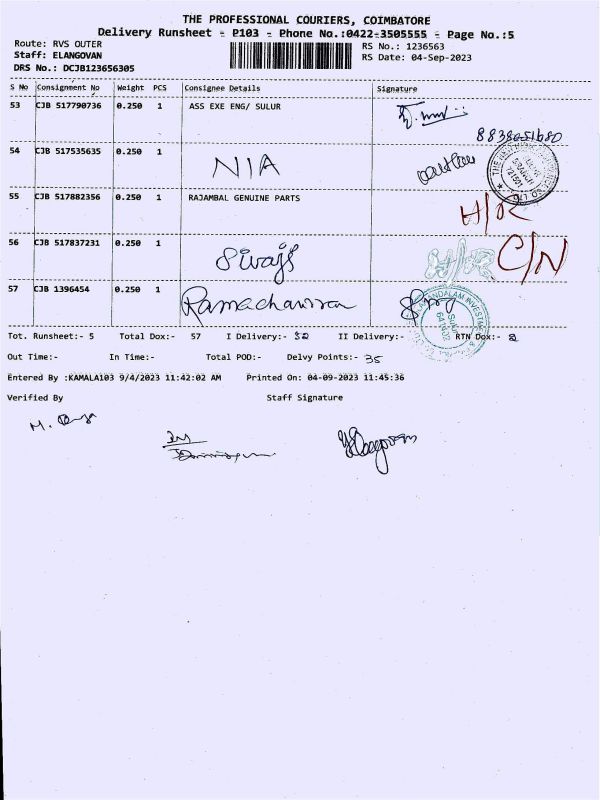 THE PROFESSIONAL COURIERS, COIMBATORE
Delivery Runsheet - P103 - Phone No.:0422-3505555 - Page No.:5
Route: RVS OUTER
Staff: ELANGOVAN
DRS No.: DCJB123656305
RS No.: 1236563
RS Date: 04-Sep-2023
S No Consignment No Weight PCS Consignee Details Signature
53 CJB 517790736 0.250 1 ASS EXE ENG/ SULUR
54 CJB 517535635 0.250 1 NIA
55 CJB 517882356 0.250 1 RAJAMBAL GENUINE PARTS H/R
56 CJB 517837231 0.250 1 Sivaji H/R C/N
57 CJB 1396454 0.250 1
Tot. Runsheet:- 5 Total Dox:- 57 I Delivery:- II Delivery:- RTN Dox:- 2
Out Time:- In Time:- Total POD:- Delvy Points:- 35
Entered By :KAMALA103 9/4/2023 11:42:02 AM Printed On: 04-09-2023 11:45:36
Verified By Staff Signature